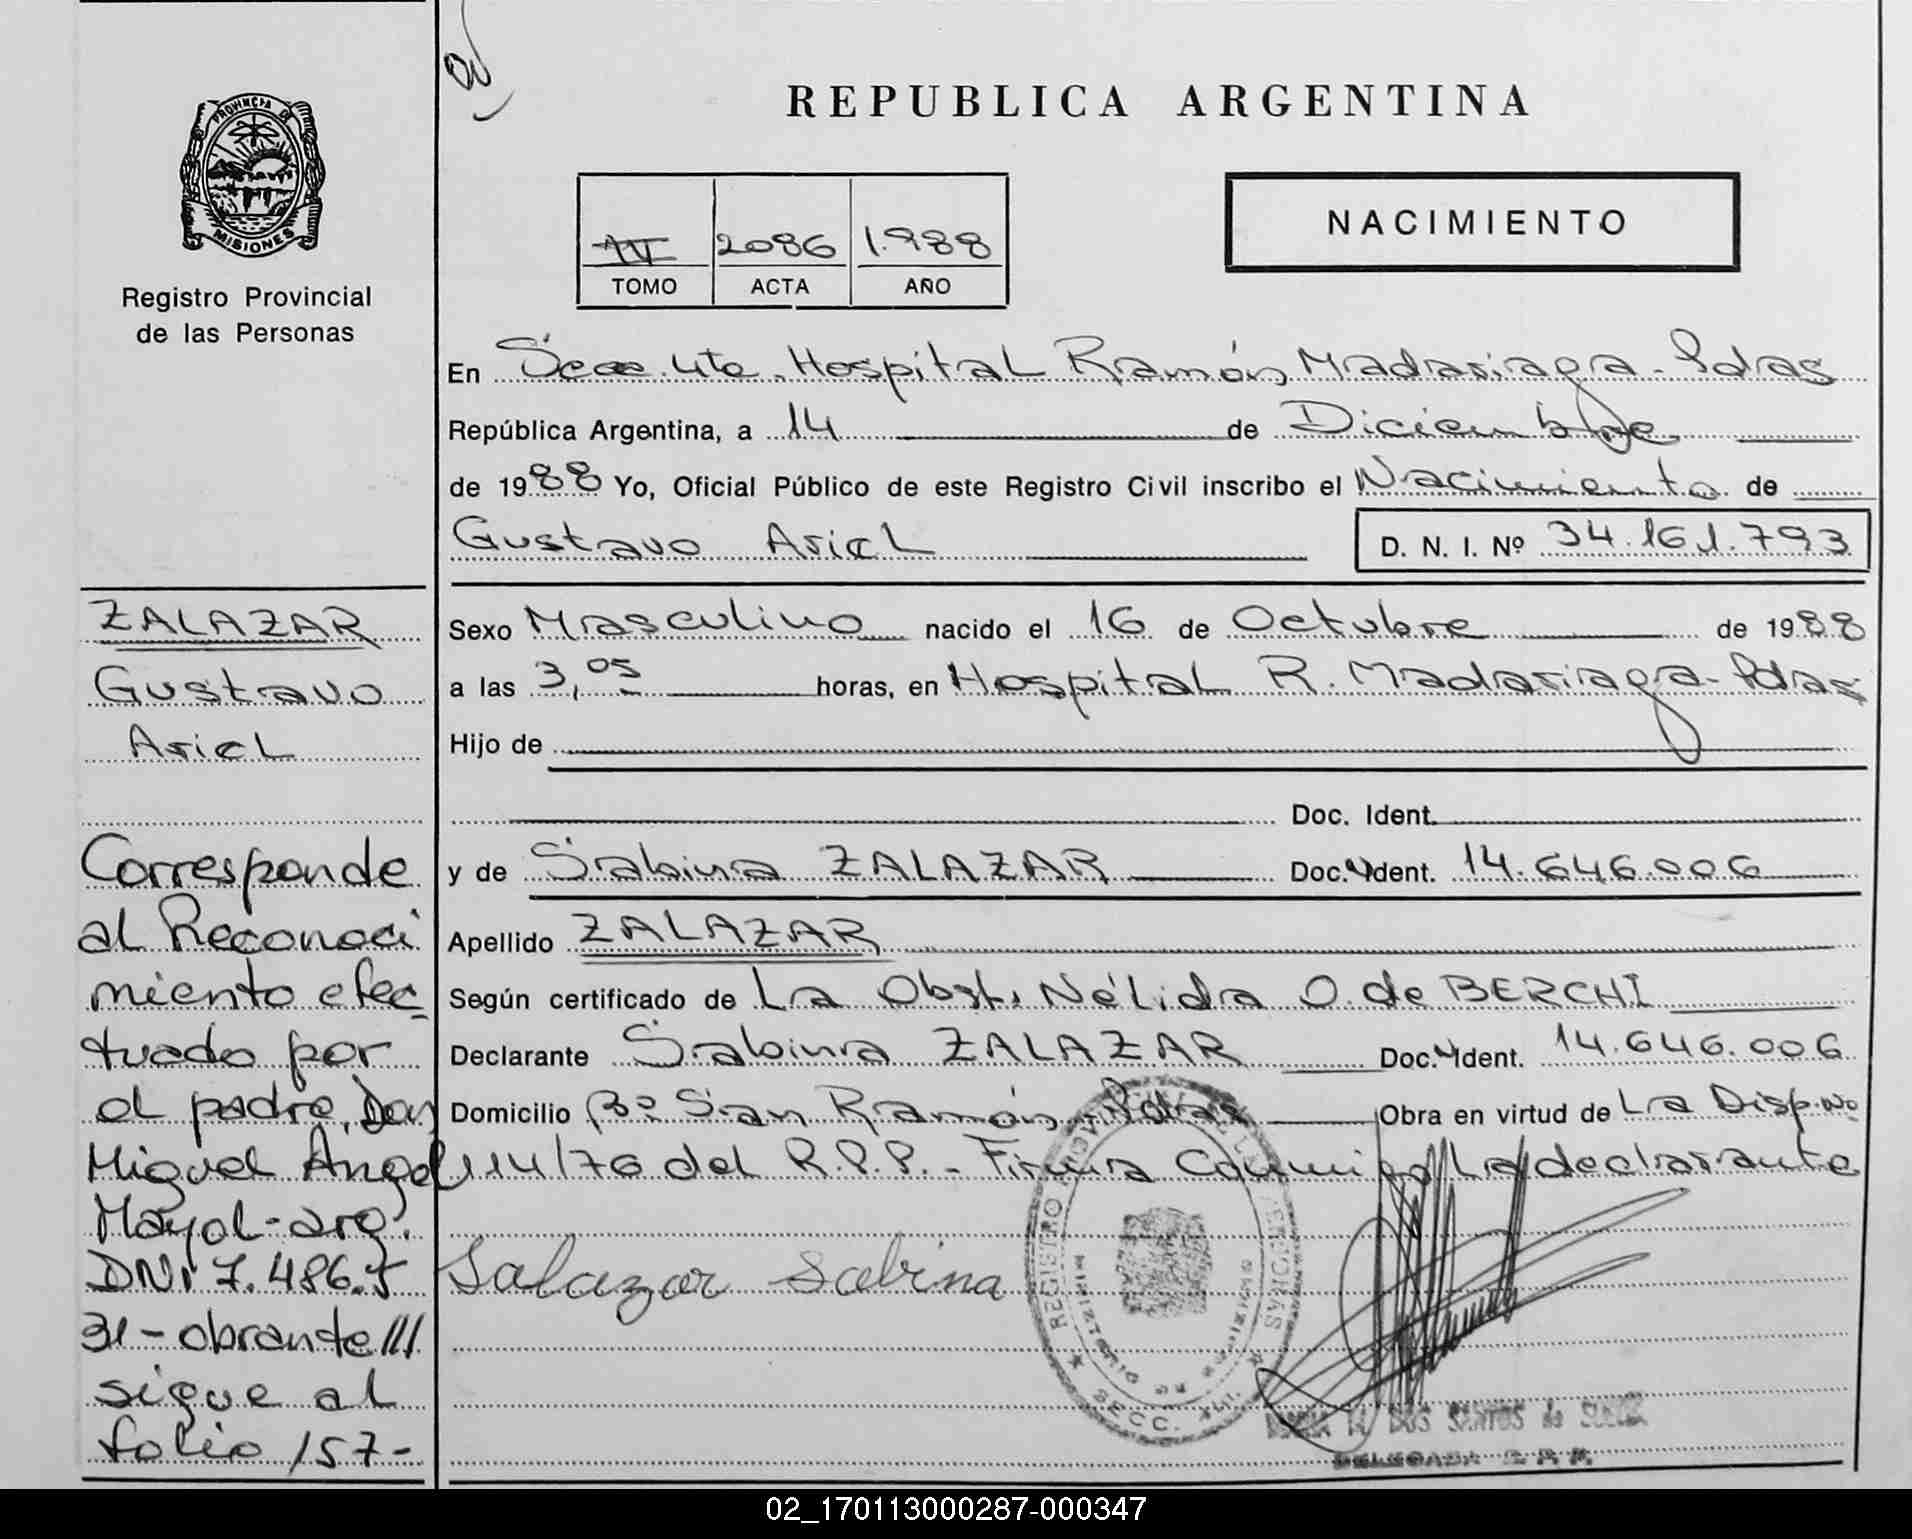 REPUBLICA ARGENTINA
PROVINCIA DE
MISIONES
Registro Provincial
de las Personas
2086 1.988
TOMO ACTA AÑO
NACIMIENTO
En Secc. 4ta. Hospital Ramón Madariaga - Pdas
República Argentina, a 14 de Diciembre
de 1988 Yo, Oficial Público de este Registro Civil inscribo el Nacimiento de
Gustavo Ariel D. N. I. Nº 34.161.793
Sexo Masculino nacido el 16 de Octubre de 1988
a las 3,05 horas, en Hospital R. Madariaga - Pdas
Hijo de
Doc. Ident.
y de Sabina ZALAZAR Doc. Ident. 14.646.006
Apellido ZALAZAR
Según certificado de La Obst. Nélida O. de BERCHI
Declarante Sabina ZALAZAR Doc. Ident. 14.646.006
Domicilio Bº San Ramón - Pdas Obra en virtud de La Disp. Nº
114/76 del R.P.P. - Firma Conmigo La declarante
Salazar Sabina
ZALAZAR
Gustavo
Ariel
Corresponde
al Reconoci
miento efec
tuado por
el padre, Don
Miguel Angel
Mayol - arg.
DNI 7.486.5
31 - obrante ///
sigue al
folio 157 -
REGISTRO
SECC.
DOS SANTOS de
DELEGADA
02_170113000287-000347